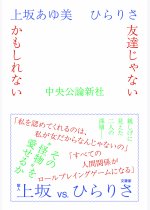 上坂あゆ美　ひらりさ
友達じゃない
かもしれない
中央公論新社
「私を認めてくれるのは、
私が女だからなんじゃないの」
「すべての
人間関係が
ロールプレイングゲームになる」
その
怪物を
愛せるか
歌人 上坂 vs. 文筆家 ひらりさ